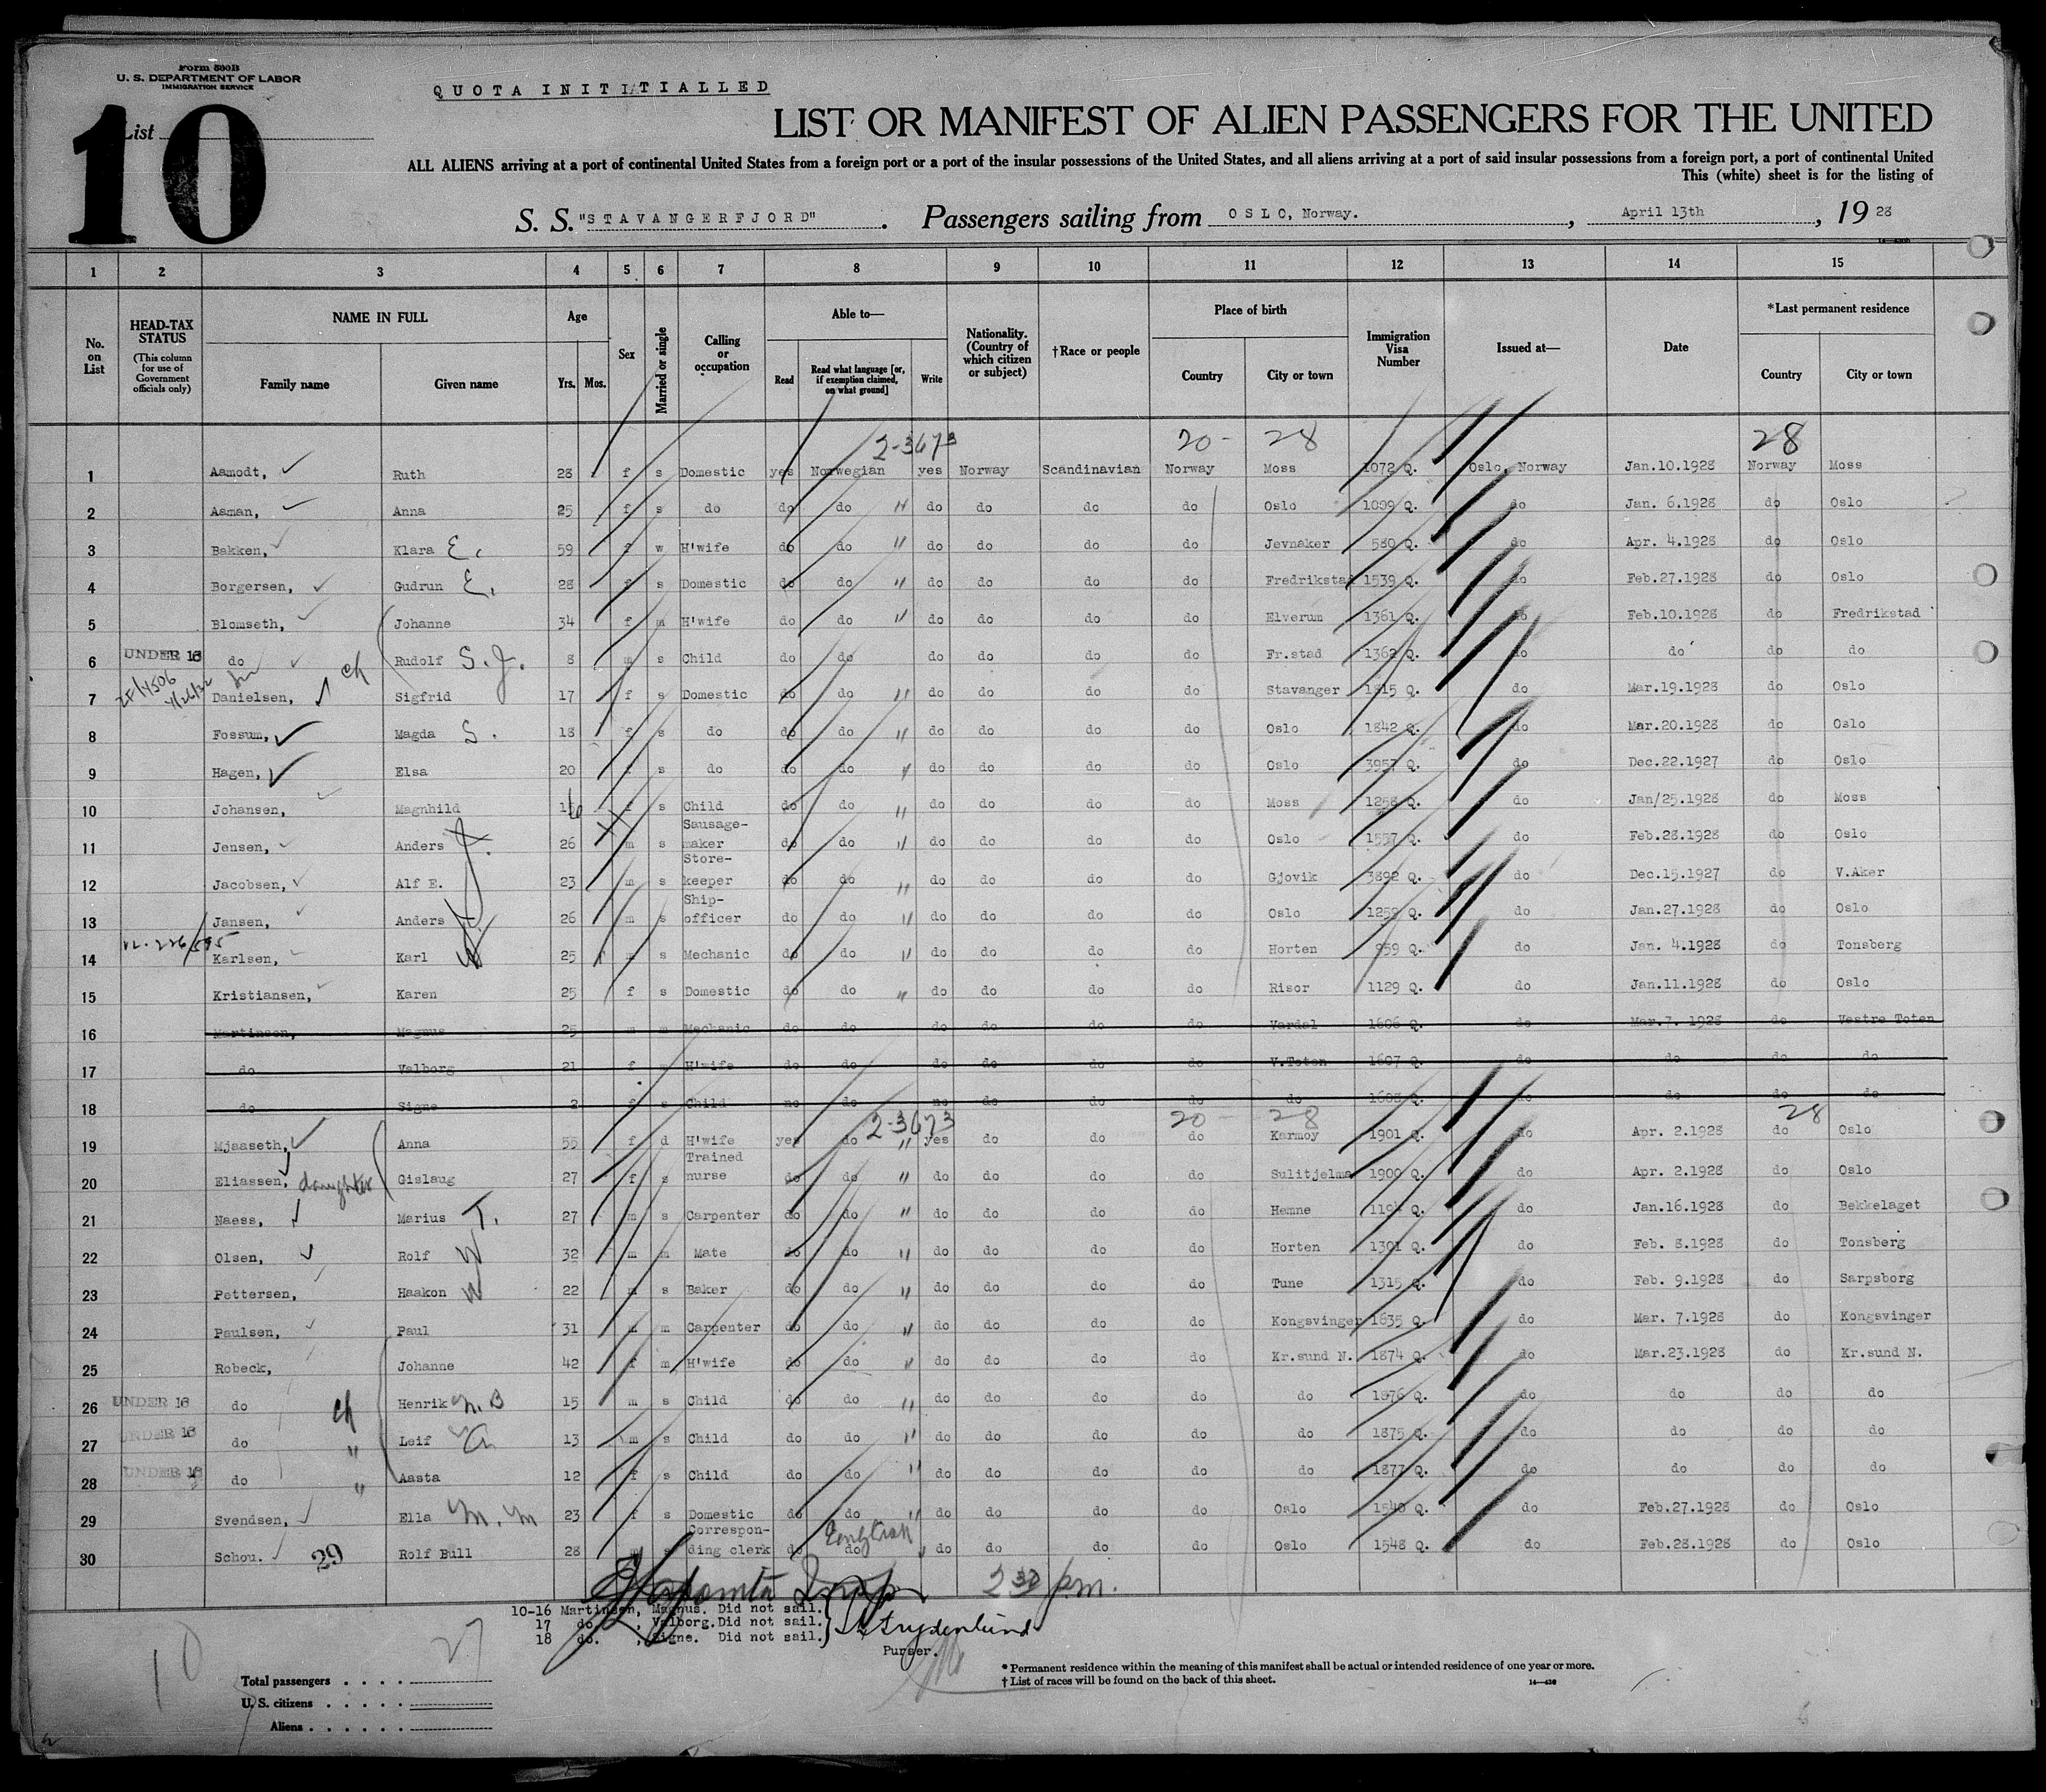 Form 500B
U. S. DEPARTMENT OF LABOR
IMMIGRATION SERVICE
QUOTA INITITIALLED
List 10
LIST OR MANIFEST OF ALIEN PASSENGERS FOR THE UNITED
ALL ALIENS arriving at a port of continental United States from a foreign port or a port of the insular possessions of the United States, and all aliens arriving at a port of said insular possessions from a foreign port, a port of continental United
This (white) sheet is for the listing of
S. S. "STAVANGERFJORD". Passengers sailing from OSLO, Norway. , April 13th , 19 28
1 2 3 4 5 6 7 8 9 10 11 12 13 14 15
No. on List
HEAD-TAX STATUS (This column for use of Government officials only)
NAME IN FULL Family name Given name
Age Yrs. Mos.
Sex
Married or single
Calling or occupation
Able to— Read Read what language [or, if exemption claimed, on what ground] Write
Nationality. (Country of which citizen or subject)
†Race or people
Place of birth Country City or town
Immigration Visa Number
Issued at—
Date
*Last permanent residence Country City or town
2-3673 20- 28 28
1 Aamodt, Ruth 28 f s Domestic yes Norwegian yes Norway Scandinavian Norway Moss 1072 Q. Oslo, Norway Jan.10.1928 Norway Moss
2 Aaman, Anna 25 f s do do do " do do do do Oslo 1009 Q. do Jan. 6.1928 do Oslo
3 Bakken, Klara E. 59 f w H'wife do do " do do do do Jevnaker 580 Q. do Apr. 4.1928 do Oslo
4 Borgersen, Gudrun E. 28 f s Domestic do do " do do do do Fredrikstad 1539 Q. do Feb.27.1928 do Oslo
5 Blomseth, Johanne 34 f m H'wife do do " do do do do Elverum 1361 Q. do Feb.10.1928 do Fredrikstad
6 UNDER 16 do ch Rudolf S.J. 8 m s Child do do do do do do Fr.stad 1362 Q. do do do do
7 Danielsen, Sigfrid 17 f s Domestic do do " do do do do Stavanger 1815 Q. do Mar.19.1928 do Oslo
8 Fossum, Magda S. 18 f s do do do " do do do do Oslo 1842 Q. do Mar.20.1928 do Oslo
9 Hagen, Elsa 20 f s do do do " do do do do Oslo 3957 Q. do Dec.22.1927 do Oslo
10 Johansen, Magnhild 16 f s Child do do " do do do do Moss 1258 Q. do Jan/25.1928 do Moss
11 Jensen, Anders 26 m s Sausage-maker do do " do do do do Oslo 1557 Q. do Feb.28.1928 do Oslo
12 Jacobsen, Alf E. 23 m s Store-keeper do do " do do do do Gjovik 3892 Q. do Dec.15.1927 do V.Aker
13 Jansen, Anders 26 m s Ship-officer do do " do do do do Oslo 1259 Q. do Jan.27.1928 do Oslo
14 Karlsen, Karl W 25 m s Mechanic do do " do do do do Horten 959 Q. do Jan. 4.1928 do Tonsberg
15 Kristiansen, Karen 25 f s Domestic do do " do do do do Risor 1129 Q. do Jan.11.1928 do Oslo
16 Martinsen, Magnus 25 m m Mechanic do do do do do do Vardal 1606 Q. do Mar.7. 1928 do Vestre Toten
17 do Valborg 21 f m H'wife do do do do do do V.Toten 1607 Q. do do do do
18 do Signe 2 f s Child no do no do do do do 1608 Q. do do do do
2-3673 20- 28 28
19 Mjaaseth, Anna 55 f d H'wife yes do " yes do do do Karmoy 1901 Q. do Apr. 2.1928 do Oslo
20 Eliassen, daughter Gislaug 27 f s Trained nurse do do " do do do do Sulitjelma 1900 Q. do Apr. 2.1928 do Oslo
21 Naess, Marius T. 27 m s Carpenter do do " do do do do Hemne Q. do Jan.16.1928 do Bekkelaget
22 Olsen, Rolf W 32 m m Mate do do " do do do do Horten 1301 Q. do Feb. 8.1928 do Tonsberg
23 Pettersen, Haakon W 22 m s Baker do do " do do do do Tune 1315 Q. do Feb. 9.1928 do Sarpsborg
24 Paulsen, Paul 31 m m Carpenter do do " do do do do Kongsvinger 1835 Q. do Mar. 7.1928 do Kongsvinger
25 Robeck, Johanne 42 f m H'wife do do " do do do do Kr.sund N. 1874 Q. do Mar.23.1928 do Kr.sund N.
26 UNDER 16 do ch Henrik N.B 15 m s Child do do " do do do do do 1876 Q. do do do do
27 UNDER 16 do " Leif 13 m s Child do do " do do do do do 1875 Q. do do do do
28 UNDER 16 do " Aasta 12 f s Child do do " do do do do do 1877 Q. do do do do
29 Svendsen, Ella M. M 23 f s Domestic do do " do do do do Oslo 1540 Q. do Feb.27.1928 do Oslo
30 Schou. 29 Rolf Bull 28 m s Correspon-ding clerk do do English do do do do Oslo 1548 Q. do Feb.28.1928 do Oslo
2 30 p.m.
10-16 Martinsen, Magnus. Did not sail.
17 do. , Valborg. Did not sail.
18 do. , Signe. Did not sail.
Purser.
10 27
Total passengers . . . .
U. S. citizens . . . . .
Aliens . . . . . .
* Permanent residence within the meaning of this manifest shall be actual or intended residence of one year or more.
† List of races will be found on the back of this sheet.
14—430